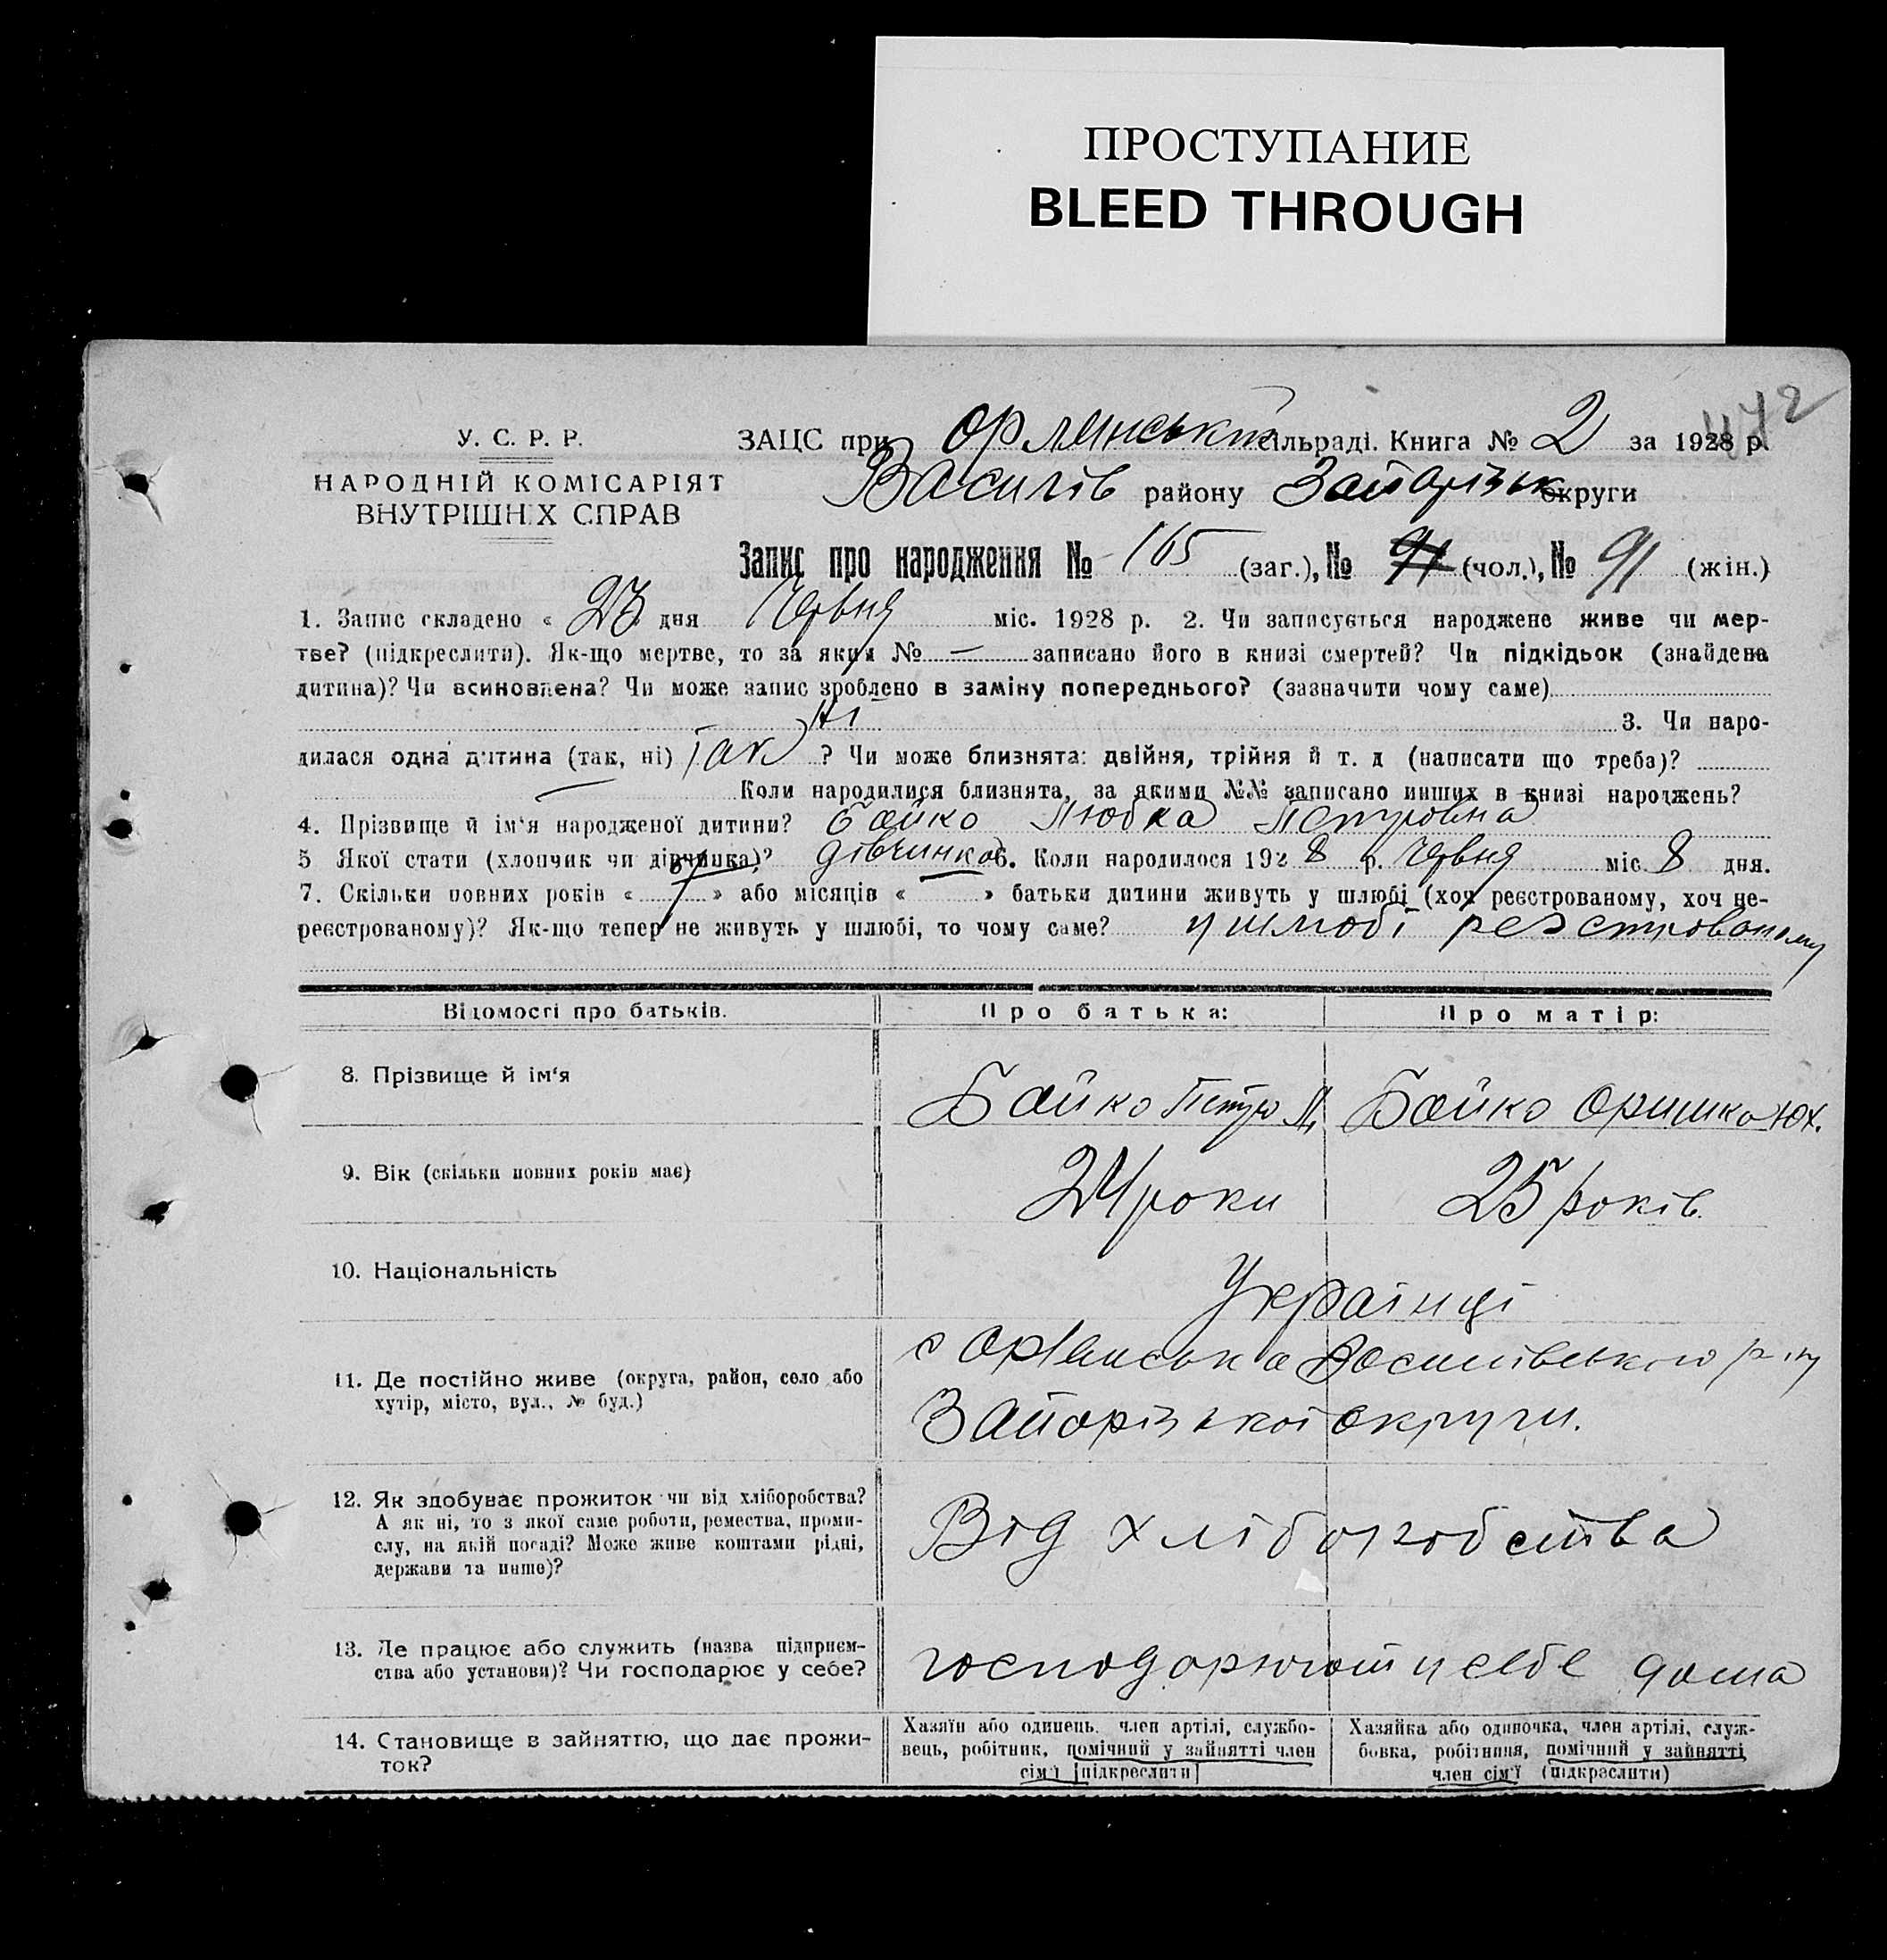 ПРОСТУПАНИЕ
BLEED THROUGH
472
У. С. Р. Р.
НАРОДНІЙ КОМІСАРІЯТ
ВНУТРІШНІХ СПРАВ
ЗАЦС при Орлянській сільраді. Книга № 2 за 1928 р.
Василів району Запоріжськ округи
Запис про народження № 165 (заг.), № 91 (чол.), № 91 (жін.)
1. Запис складено « 23 дня Червня міс. 1928 р. 2. Чи записується народжене живе чи мер-
тве? (підкреслити). Як-що мертве, то за яким № — записано його в книзі смертей? Чи підкідьок (знайдена
дитина)? Чи всиновлена? Чи може запис зроблено в заміну попереднього? (зазначити чому саме)
Ні 3. Чи наро-
дилася одна дитина (так, ні) Так ? Чи може близнята: двійня, трійня й т. д (написати що треба)?
— Коли народилися близнята, за якими №№ записано инших в книзі народжень?
4. Прізвище й ім'я народженої дитини? Бойко Любка Петровна
5 Якої стати (хлопчик чи дівчинка)? дівчинка 6. Коли народилося 1928 р. Червня міс. 8 дня.
7. Скільки повних років « 1 » або місяців « — » батьки дитини живуть у шлюбі (хоч реєстрованому, хоч не-
реєстрованому)? Як-що тепер не живуть у шлюбі, то чому саме? у шлюбі реэстрованому
Відомості про батьків.
Про батька:
Про матір:
8. Прізвище й ім'я
Бойко Петро
Бойко Оришка Юх.
9. Вік (скільки повних років має)
24 роки
25 років
10. Національність
Українці
11. Де постійно живе (округа, район, село або
хутір, місто, вул., № буд.)
с Орлянська Василівського р-ну
Запорізької округи.
12. Як здобуває прожиток чи від хліборобства?
А як ні, то з якої саме роботи, ремества, проми-
слу, на якій посаді? Може живе коштами рідні,
держави та инше)?
Від хліборобства
13. Де працює або служить (назва підприєм-
ства або установи)? Чи господарює у себе?
господарюют у себе дома
14. Становище в зайняттю, що дає прожи-
ток?
Хазяїн або одинець, член артілі, службо-
вець, робітник, помічний у зайнятті член
сім'ї [підкреслити]
Хазяйка або одиночка, член артілі, служ-
бовка, робітниця, помічний у зайнятті
член сім'ї (підкреслити)